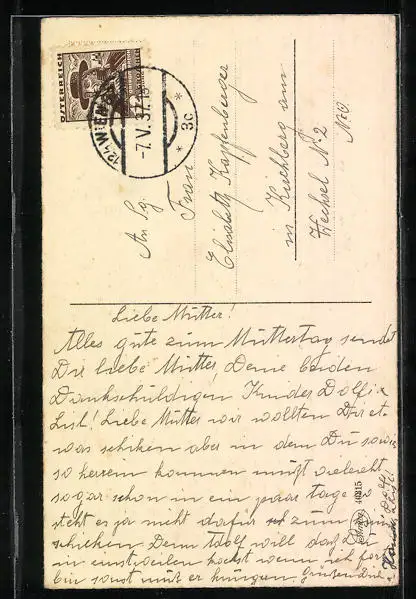 ÖSTERREICH
WIEN
-7.V.37.
* 3c *
An Sg.
Frau
Elisabeth Kapfenberger
in Kirchberg am
Wechsel No 2
N.Ö.
Liebe Mutter!
Alles gute zum Muttertag sendet
Dir liebe Mutter, Deine beiden
Dankschuldigen Kinder Dolfi u
List! Liebe Mutter wir wollten Dir et-
was schiken aber in dem Du sowie-
so herein kommen mußt vieleicht
sogar schon in ein paar tage so
steht es ja nicht dafür zum
schicken. Denn Adolf will daß Du
in einstweilen kochst wenn ich fort
bin sonst muß er hungern. Grüßen Dich